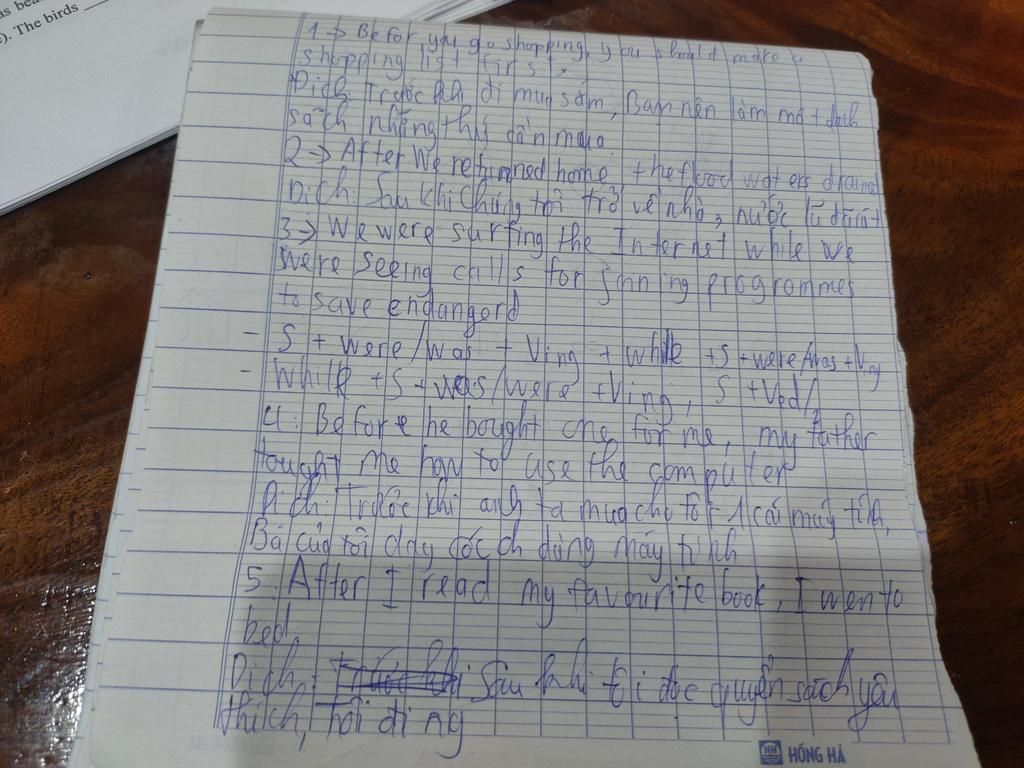 s bea
). The birds
1 → Befor you go shopping, you should make a
shopping list firs.
Dịch: Trước khi đi mua sắm, Bạn nên làm một danh
sách những thứ cần mua
2 → After we returned home, the flood waters drained
Dịch: Sau khi chúng tôi trở về nhà, nước lũ đã rút
3 → We were surfing the Internet while we
were seeing calls for joining programmes
to save endangord
- S + were/was + Ving + while + S + were/was + Ving
- While + S + was/were + Ving, S + Ved/
4: Before he bought one for me, my father
tought me how to use the computer
Dịch: Trước khi anh ta mua cho tôi 1 cái máy tính,
Bố của tôi dạy cách dùng máy tính
5. After I read my favourite book, I wen to
bed.
Dịch: Sau khi tôi đọc quyển sách yêu
thích, tôi đi ng
HH HỒNG HÀ